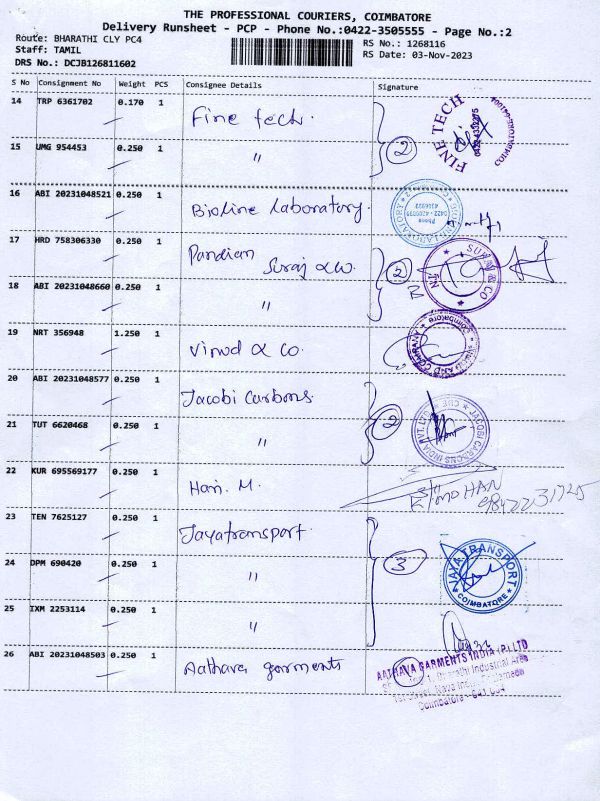 THE PROFESSIONAL COURIERS, COIMBATORE
Delivery Runsheet - PCP - Phone No.:0422-3505555 - Page No.:2
Route: BHARATHI CLY PC4
RS No.: 1268116
Staff: TAMIL
RS Date: 03-Nov-2023
DRS No.: DCJB126811602
S No Consignment No Weight PCS Consignee Details Signature
14 TRP 6361702 0.170 1 Fine tech.
FINE TECH
15 UMG 954453 0.250 1 "
2
16 ABI 20231048521 0.250 1 Bioline laboratory.
17 HRD 758306330 0.250 1 Pandian Suraj & co.
2
SURAJ & CO
18 ABI 20231048660 0.250 1 "
19 NRT 356948 1.250 1 Vinod & co.
20 ABI 20231048577 0.250 1 Jacobi Carbons.
2
JACOBI CARBONS INDIA PVT. LTD
21 TUT 6620468 0.250 1 "
22 KUR 695569177 0.250 1 Hari. M.
MOHAN
23 TEN 7625127 0.250 1 Jayatransport.
24 DPM 690420 0.250 1 "
3
JAYA TRANSPORT
COIMBATORE
25 IXM 2253114 0.250 1 "
26 ABI 20231048503 0.250 1 Aathava garments
AATHAVA GARMENTS INDIA (P) LTD
Bharathi Industrial Area
Coimbatore - 641 004